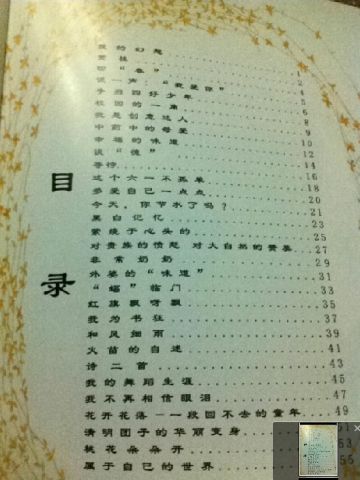 目录
我的幻想 1
赏桂 2
回“春” 4
说一声“我爱你” 5
争当四好少年 6
校园的一角 8
我是创意达人 9
中的母爱 10
幸福的味道 12
谈 14
等待 16
这个六一不孤单 18
多爱自己一点点 20
今天，你节水了吗？ 21
黑白记忆 23
萦绕于心头的 25
对贵族的愤怒 对大自然的赞美 27
非常奶奶 29
外婆的“味道” 31
“蝠”临门 33
红旗飘呀飘 35
我为书狂 37
和风细雨 39
火苗的自述 41
诗二首 43
我的舞蹈生涯 45
我不再相信眼泪 47
花开花落——一段回不去的童年 49
清明团子的华丽变身 51
桃花朵朵开 53
属于自己的世界 55